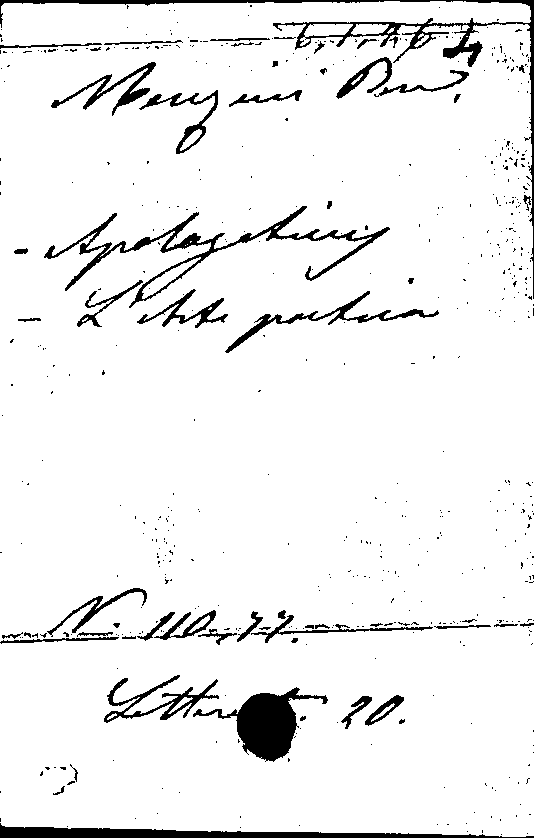 Menzini Ben.
- Apologeticus
- L'Arte poetica
N. 110,77.
Letter t. 20.